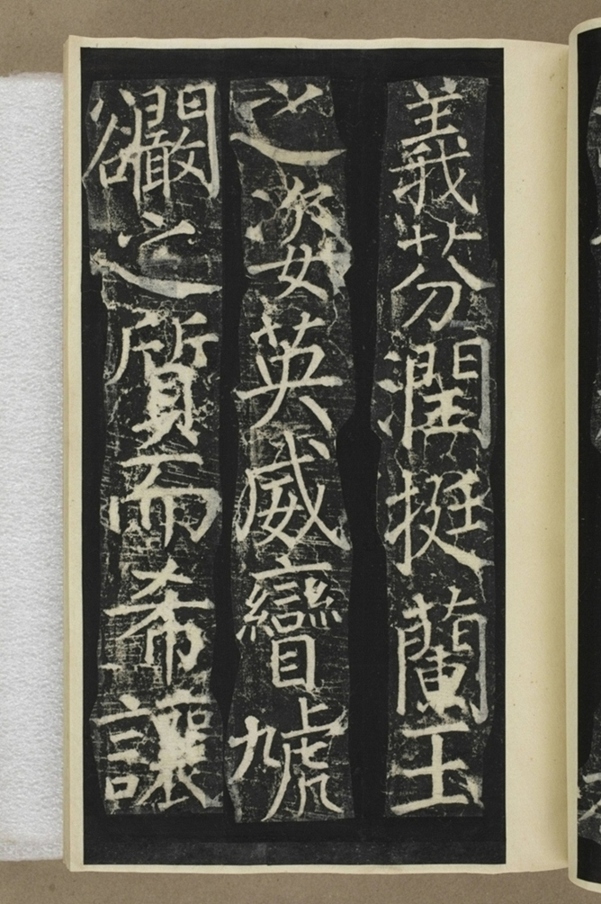 義芬潤挺蘭玉
之姿英威矕虓
之質而希讓